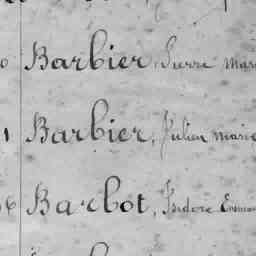 Barbier, Pierre Mari
Barbier, Julien Marie
Barbot, Isidore